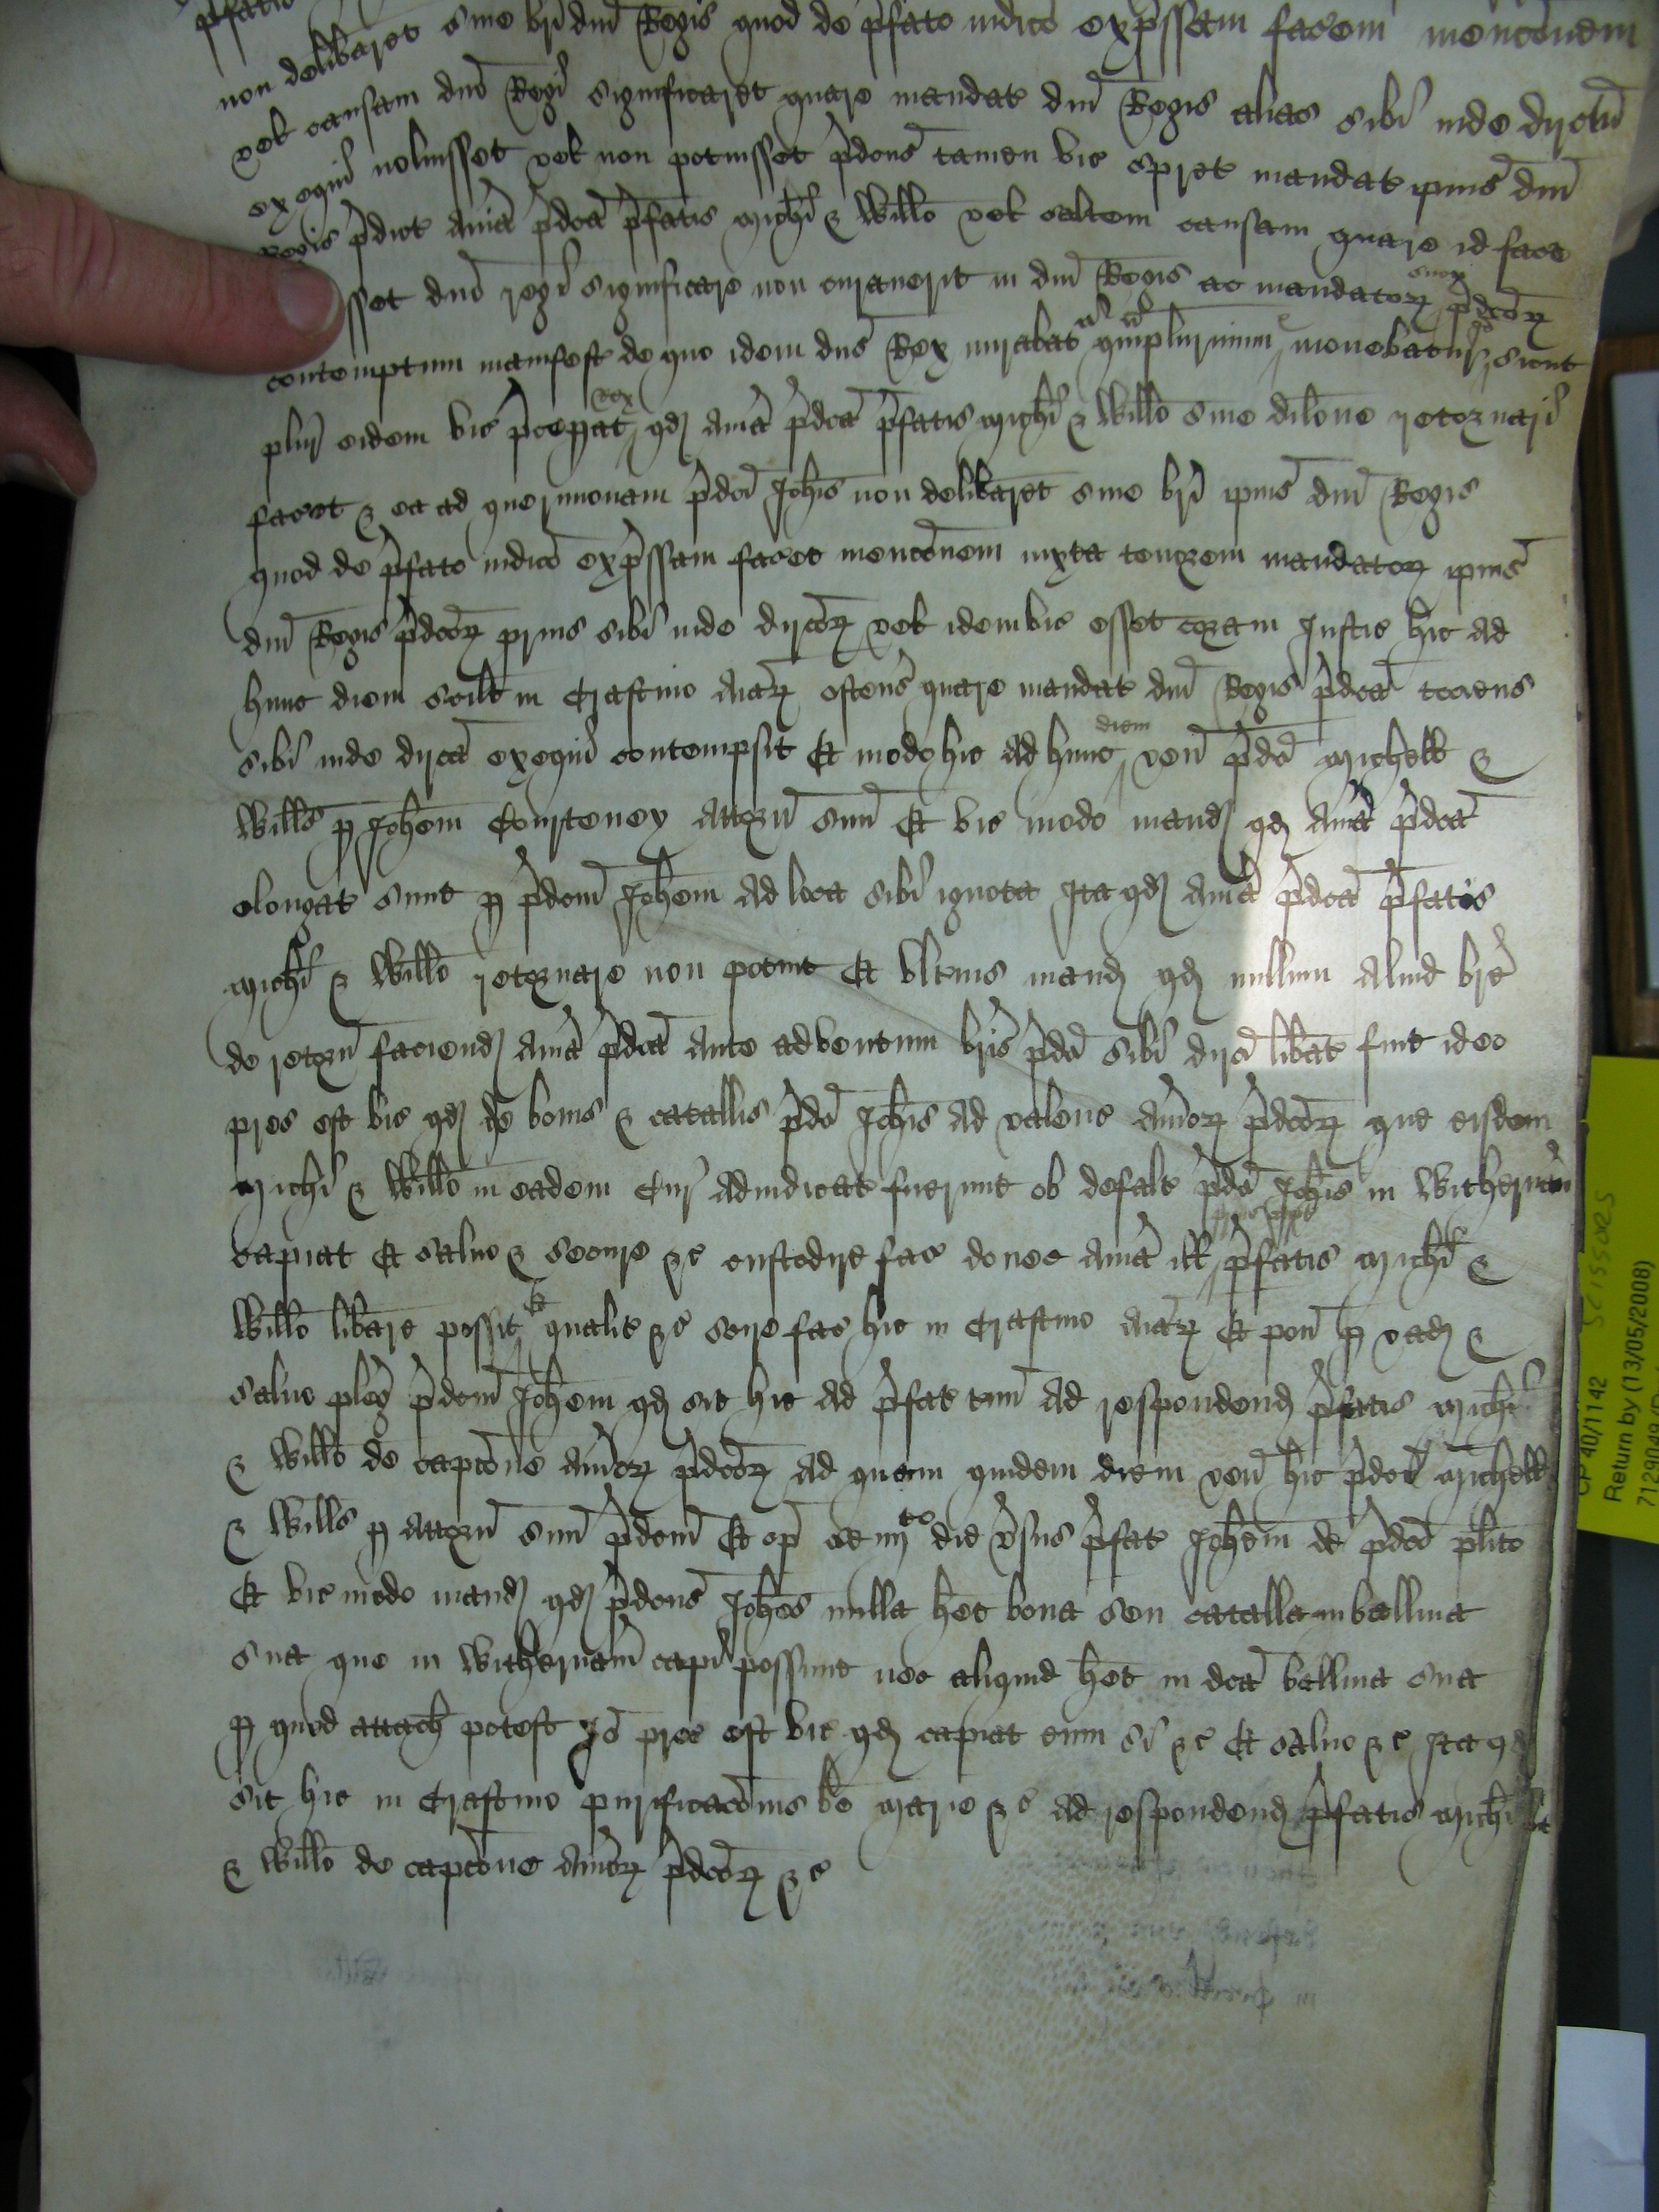 p̄fatis
non delib̄aret sine br̄i dn̄i Regis quod de p̄fato iudico exp̄ssam facēm menc̄onem
vel causam dn̄o Regi significaret quare mandat dn̄i Regis alias sibi inde dir̄ctū
exequi noluisset vel non potuisset p̄dcūs tamen vic spret mandat ip̄ius dn̄i
Regis p̄dict aū̄ia p̄dcā p̄fatis Mich̄i & Wil̄lo vel saltem causam quare id face
sset dn̄o regi significare non curauerit in dn̄i Regis ac mandatoꝝ suoꝝ p̄dc̄oꝝ
contemptum manifest de quo idem dn̄s Rex mirabat qm̄plurimum & mouebatur sicut
plur eidem vic p̄cepat Rex qd̄ aūia p̄dcā p̄fatis Mich̄i & Wil̄lo sine dil̄one retornari
facet & ea ad querimoniam p̄dc̄i Joh̄is non delib̄aret sine br̄i ip̄ius dn̄i Regis
quod de p̄fato iudico exp̄ssam facet menc̄onem iuxta tenorem mandatoꝝ ip̄ius
dn̄i Regis p̄dc̄oꝝ prius sibi inde dirc̄oꝝ vel idem vic esset coram Justic hic ad
hunc diem scilt in Crastino aīaꝝ ostens quare mandat dn̄i Regis p̄dcā tociens
sibi inde dir̄cā exequi contempsit Et modo hic ad hunc diem ven̄ p̄dc̄i Michell &
Wil̄ls p̱ Joh̄em Courteney attorn̄ suū Et vic modo mand qd̄ aūia p̄dcā
elongat sunt p̱ p̄dcm̄ Joh̄em ad loca sibi ignota Ita qd̄ aūia p̄dcā p̄fatis
Mich̄i & Wil̄lo retornare non potuit Et vlterius mand qd̄ nullum aliud br̄e
de retorn̄ faciend aūia p̄dcā ante adventum br̄is p̄dc̄i sibi dirc̄i lib̄at fuit ideo
prec est vic qd̄ de bonis & catallis p̄dc̄i Joh̄is ad valenc aūioꝝ p̄dc̄oꝝ que eisdem
Mich̄i & Wil̄lo in eadem Cur adiudicat fuerunt ob defalt p̄dc̄i Joh̄is in Withernam
capiat Et saluo & secure &c custodire fac donec aūia ill p̄fatis Mich̄i &
Wil̄lo lib̄are possit Et qualit &c scire fac hic in Crastino aīaꝝ Et pon̄ p̱ vad &
saluo pleg p̄dcm̄ Joh̄em qd̄ sit hic ad p̄fat t̄m̄ ad respondend p̄fatis Mich̄i
& Wil̄lo de capc̄one aūioꝝ p̄dc̄oꝝ ad quem quidem diem ven̄ hic p̄dc̄i Michell
& Wil̄ls p̱ attorn̄ suū p̄dcm̄ Et op̄ se iiij^to die v̄sus p̄fat Joh̄em de p̄dc̄o pl̄ito
Et vic modo mand qd̄ p̄dcūs Joh̄es nulla h̄et bona seu catalla in balliua
sua que in Withernam capi possunt nec aliquid h̄et in dcā balliua sua
p̱ quod attach̄ potest Jō prec est vic qd̄ capiat eum si &c Et saluo &c Ita qd̄
sit hic in Crastino purificac̄onis b̄e Marie &c ad respondend p̄fatis Mich̄i
& Wil̄lo de capc̄one aūioꝝ p̄dc̄oꝝ &c
CP 40/1142 SCISSORS
Return by (13/05/2008)